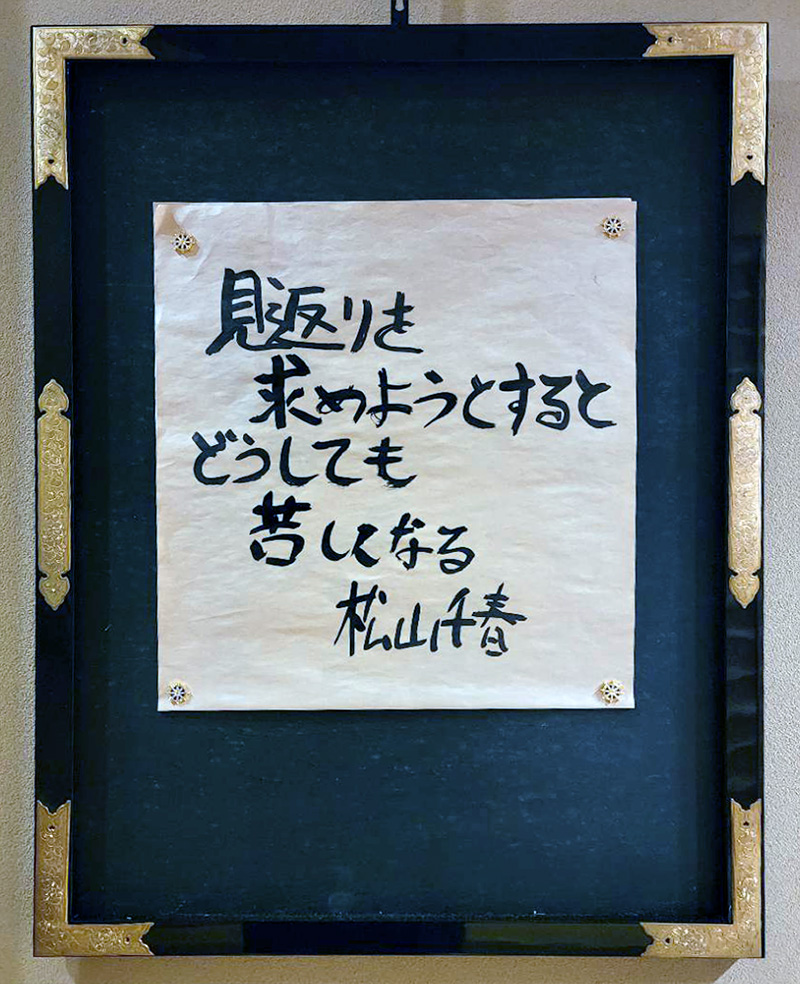 見返りを
求めようとすると
どうしても
苦しくなる
松山千春